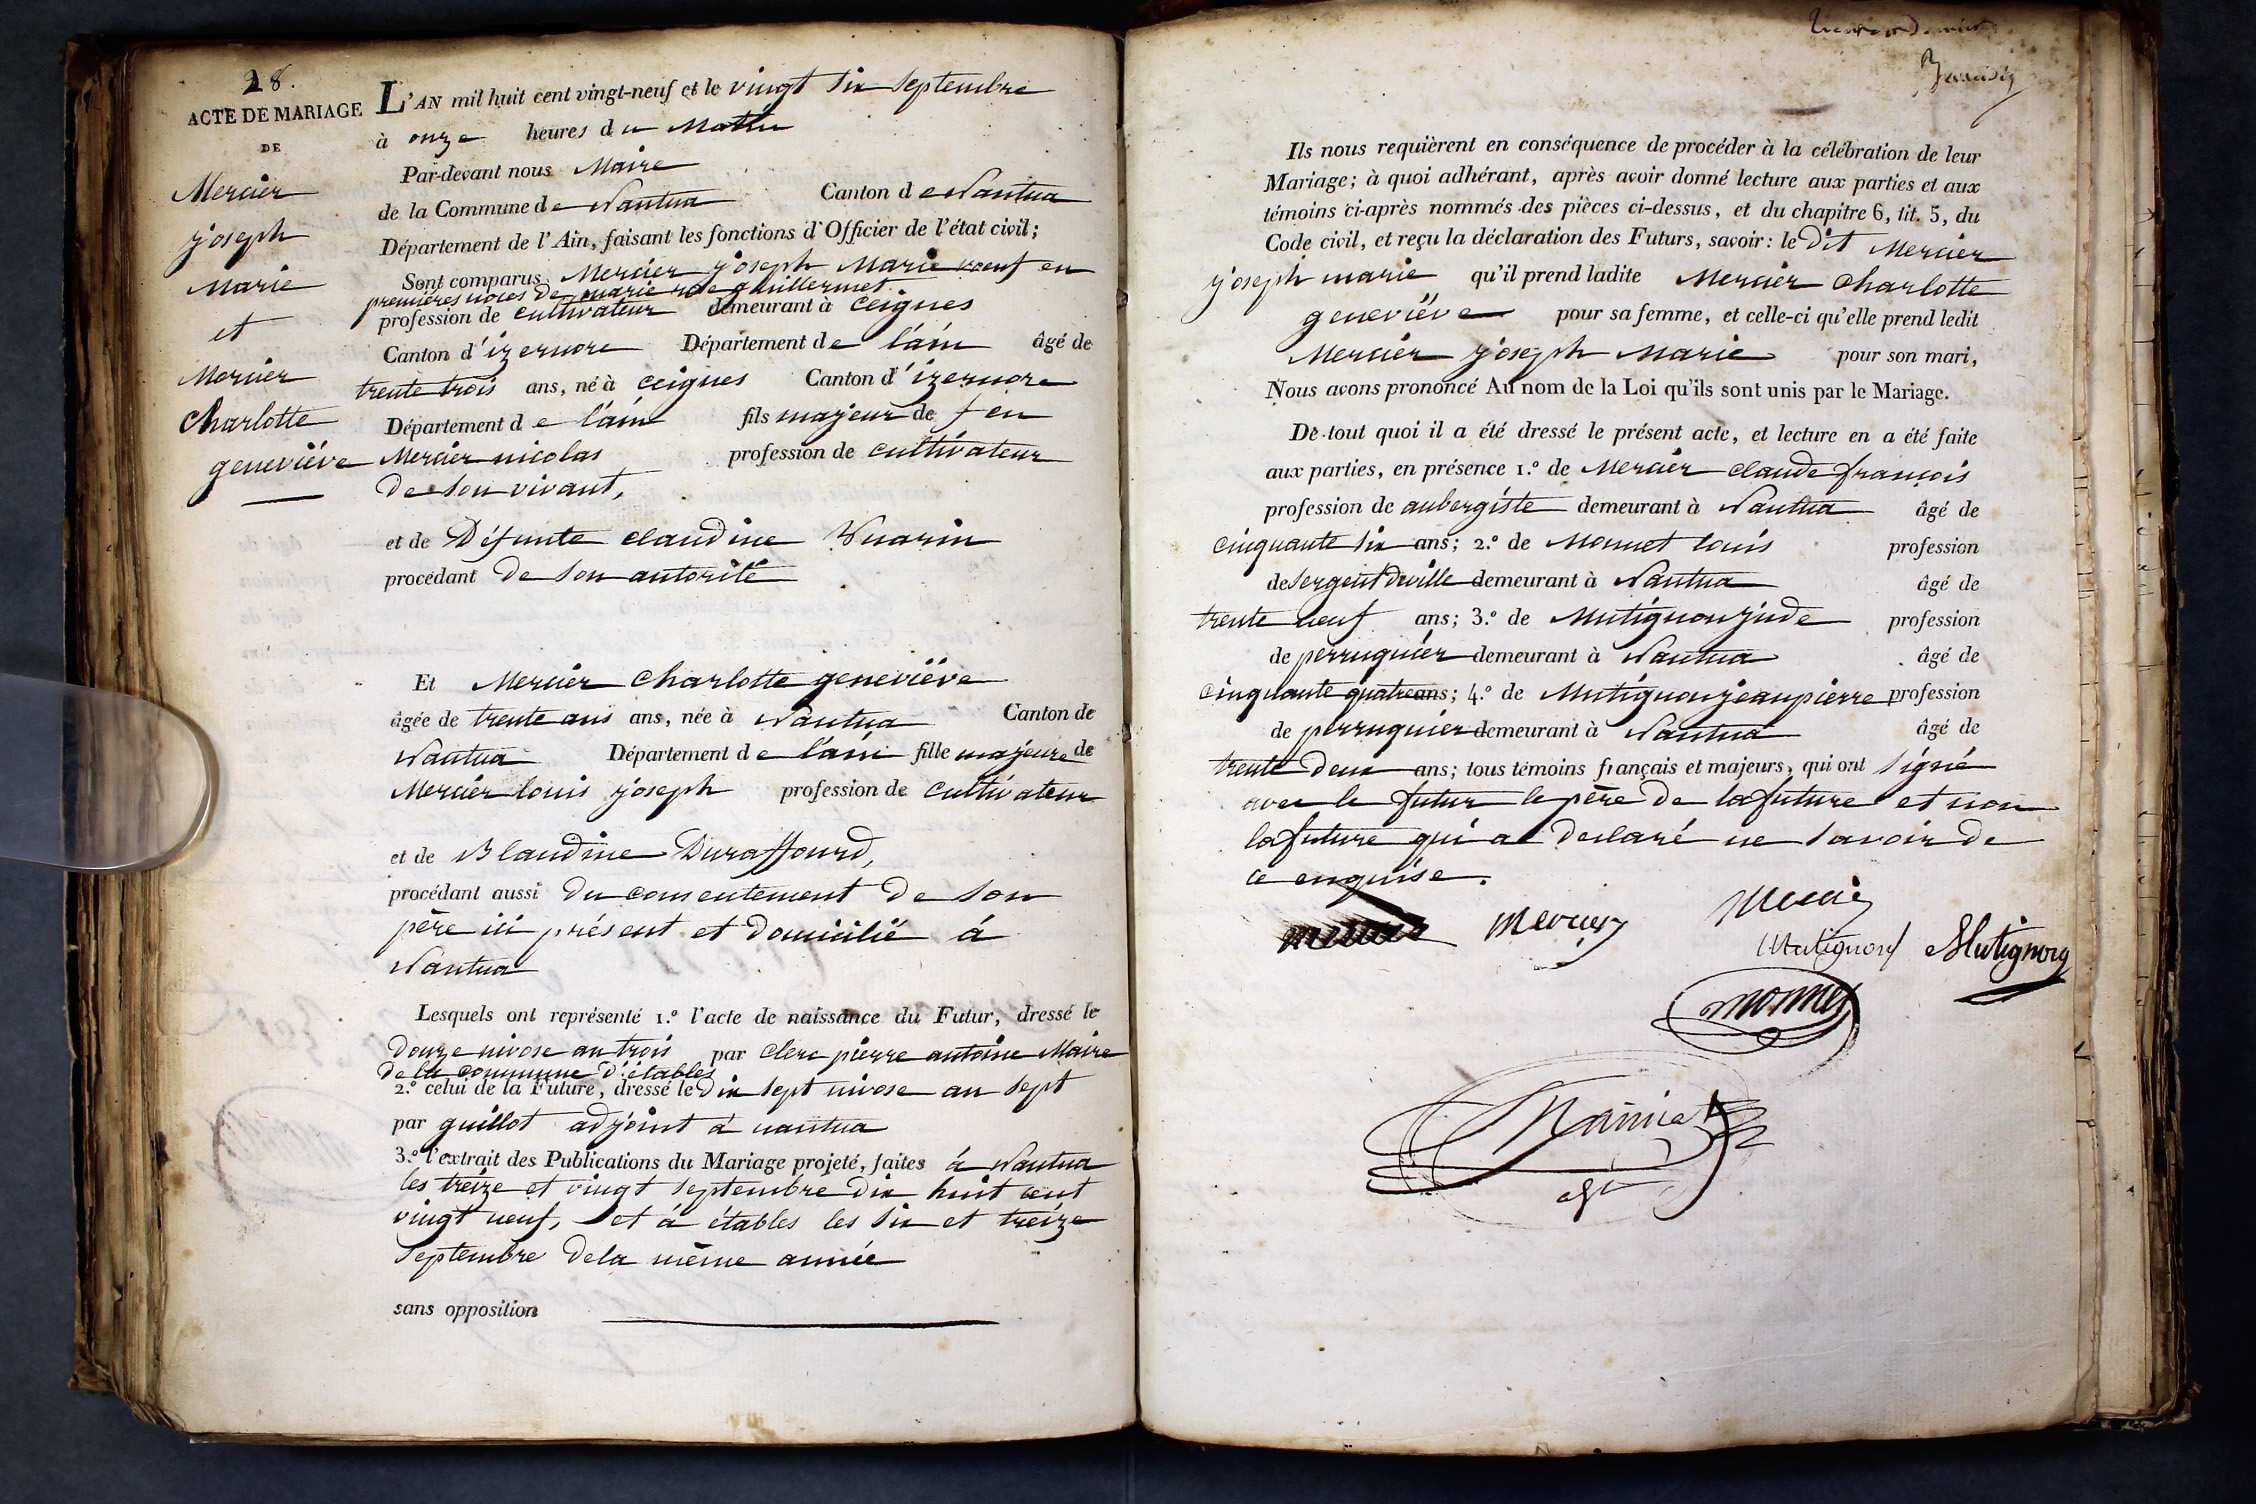 28.
ACTE DE MARIAGE
DE
Mercier
joseph
marie
et
Mercier
Charlotte
geneviève
L'AN mil huit cent vingt-neuf et le vingt six septembre
à onze heures du Matin
Par-devant nous Maire
de la Commune de Nantua Canton de Nantua
Département de l'Ain, faisant les fonctions d'Officier de l'état civil;
Sont comparus Mercier joseph Marie veuf en
premières noces de marie rose guillermet
profession de cultivateur demeurant à Ceignes
Canton d'izernore Département de l'ain âgé de
trente trois ans, né à ceignes Canton d'izernore
Département de l'ain fils majeur de feu
Mercier nicolas profession de cultivateur
de son vivant,
et de Défunte claudine Vuarin
procédant de son autorité
Et Mercier Charlotte geneviève
âgée de trente ans ans, née à Nantua Canton de
Nantua Département de l'ain fille majeure de
Mercier louis joseph profession de cultivateur
et de Blandine Duraffourd,
procédant aussi du consentement de son
père ici présent et domicilié à
Nantua
Lesquels ont représenté 1.º l'acte de naissance du Futur, dressé le
Douze nivose an trois par clerc pierre antoine Maire
de la commune d'étables
2.º celui de la Future, dressé le Dix sept nivose an sept
par guillot adjoint à nantua
3.º l'extrait des Publications du Mariage projeté, faites à Nantua
les treize et vingt septembre dix huit cent
vingt neuf, et à étables les six et treize
septembre de la même année
sans opposition
Ils nous requièrent en conséquence de procéder à la célébration de leur
Mariage; à quoi adhérant, après avoir donné lecture aux parties et aux
témoins ci-après nommés des pièces ci-dessus, et du chapitre 6, tit. 5, du
Code civil, et reçu la déclaration des Futurs, savoir: le dit Mercier
joseph marie qu'il prend ladite Mercier Charlotte
geneviève pour sa femme, et celle-ci qu'elle prend ledit
Mercier joseph Marie pour son mari,
Nous avons prononcé Au nom de la Loi qu'ils sont unis par le Mariage.
De tout quoi il a été dressé le présent acte, et lecture en a été faite
aux parties, en présence 1.º de Mercier claude françois
profession de aubergiste demeurant à Nantua âgé de
cinquante six ans; 2.º de Monnet louis profession
de sergent deville demeurant à Nantua âgé de
trente neuf ans; 3.º de Mutignon jude profession
de perruquier demeurant à Nantua âgé de
cinquante quatre ans; 4.º de Mutignon jean pierre profession
de perruquier demeurant à Nantua âgé de
trente deux ans; tous témoins français et majeurs, qui ont signé
avec le futur le père de la future et non
la future qui a déclaré ne savoir de
ce enquise.
mercier Mercier Mercier
Mutignon Mutignon
monnet